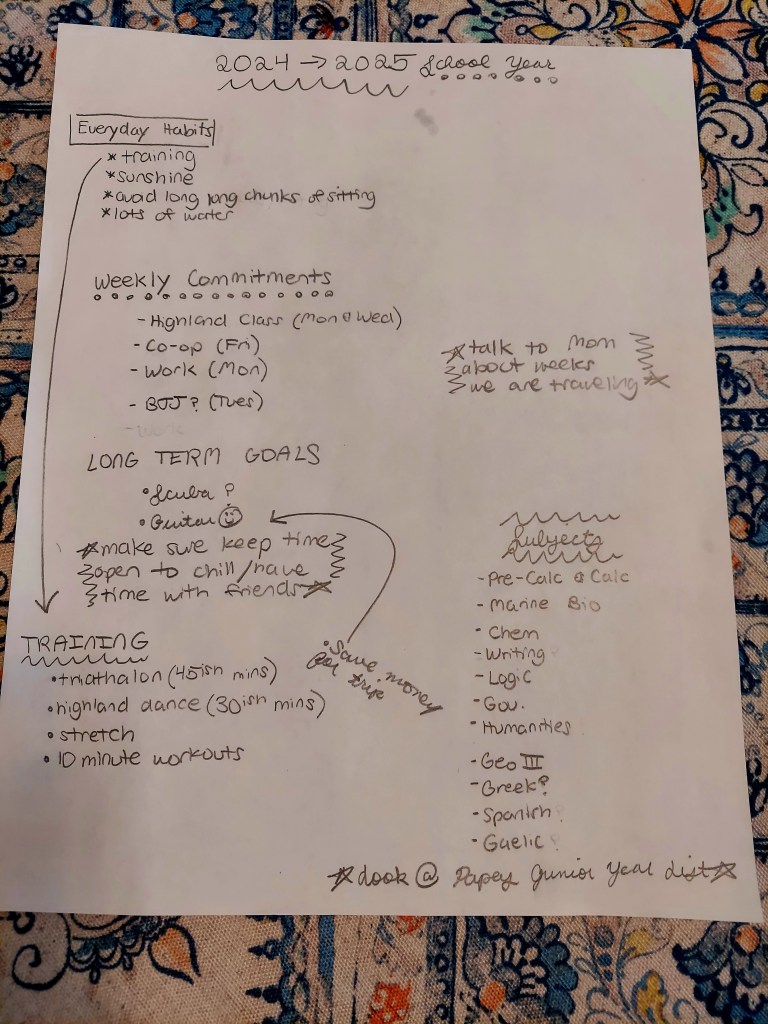 2024 → 2025 School Year
Everyday Habits
* training
* sunshine
* avoid long long chunks of sitting
* lots of water
Weekly Commitments
- Highland Class (Mon & Wed)
- Co-op (Fri)
- Work (Mon)
- BJJ? (Tues)
- work
☆ talk to Mom
about weeks
we are traveling ☆
LONG TERM GOALS
• Scuba?
• Guitar ☺
☆ make sure keep time
open to chill/have
time with friends ☆
• Save money
for trip
TRAINING
• triathalon (45ish mins)
• highland dance (30ish mins)
• stretch
• 10 minute workouts
Subjects
- Pre-Calc & Calc
- Marine Bio
- Chem
- Writing
- Logic
- Gov.
- Humanities
- Geo III
- Greek?
- Spanish?
- Gaelic?
☆ Look @ Junior Year List ☆